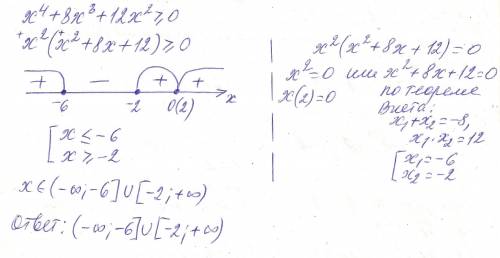 x⁴+8x³+12x²≥0
⁺x²(⁺x²+8x+12)≥0
+ − + +
-6 -2 0(2) x
[x≤-6
x≥-2
x∈(-∞;-6]∪[-2;+∞)
Ответ: (-∞;-6]∪[-2;+∞)
x²(x²+8x+12)=0
x²=0 или x²+8x+12=0
x(2)=0 по теореме
Виета:
x₁+x₂=-8,
x₁·x₂=12
[x₁=-6
x₂=-2